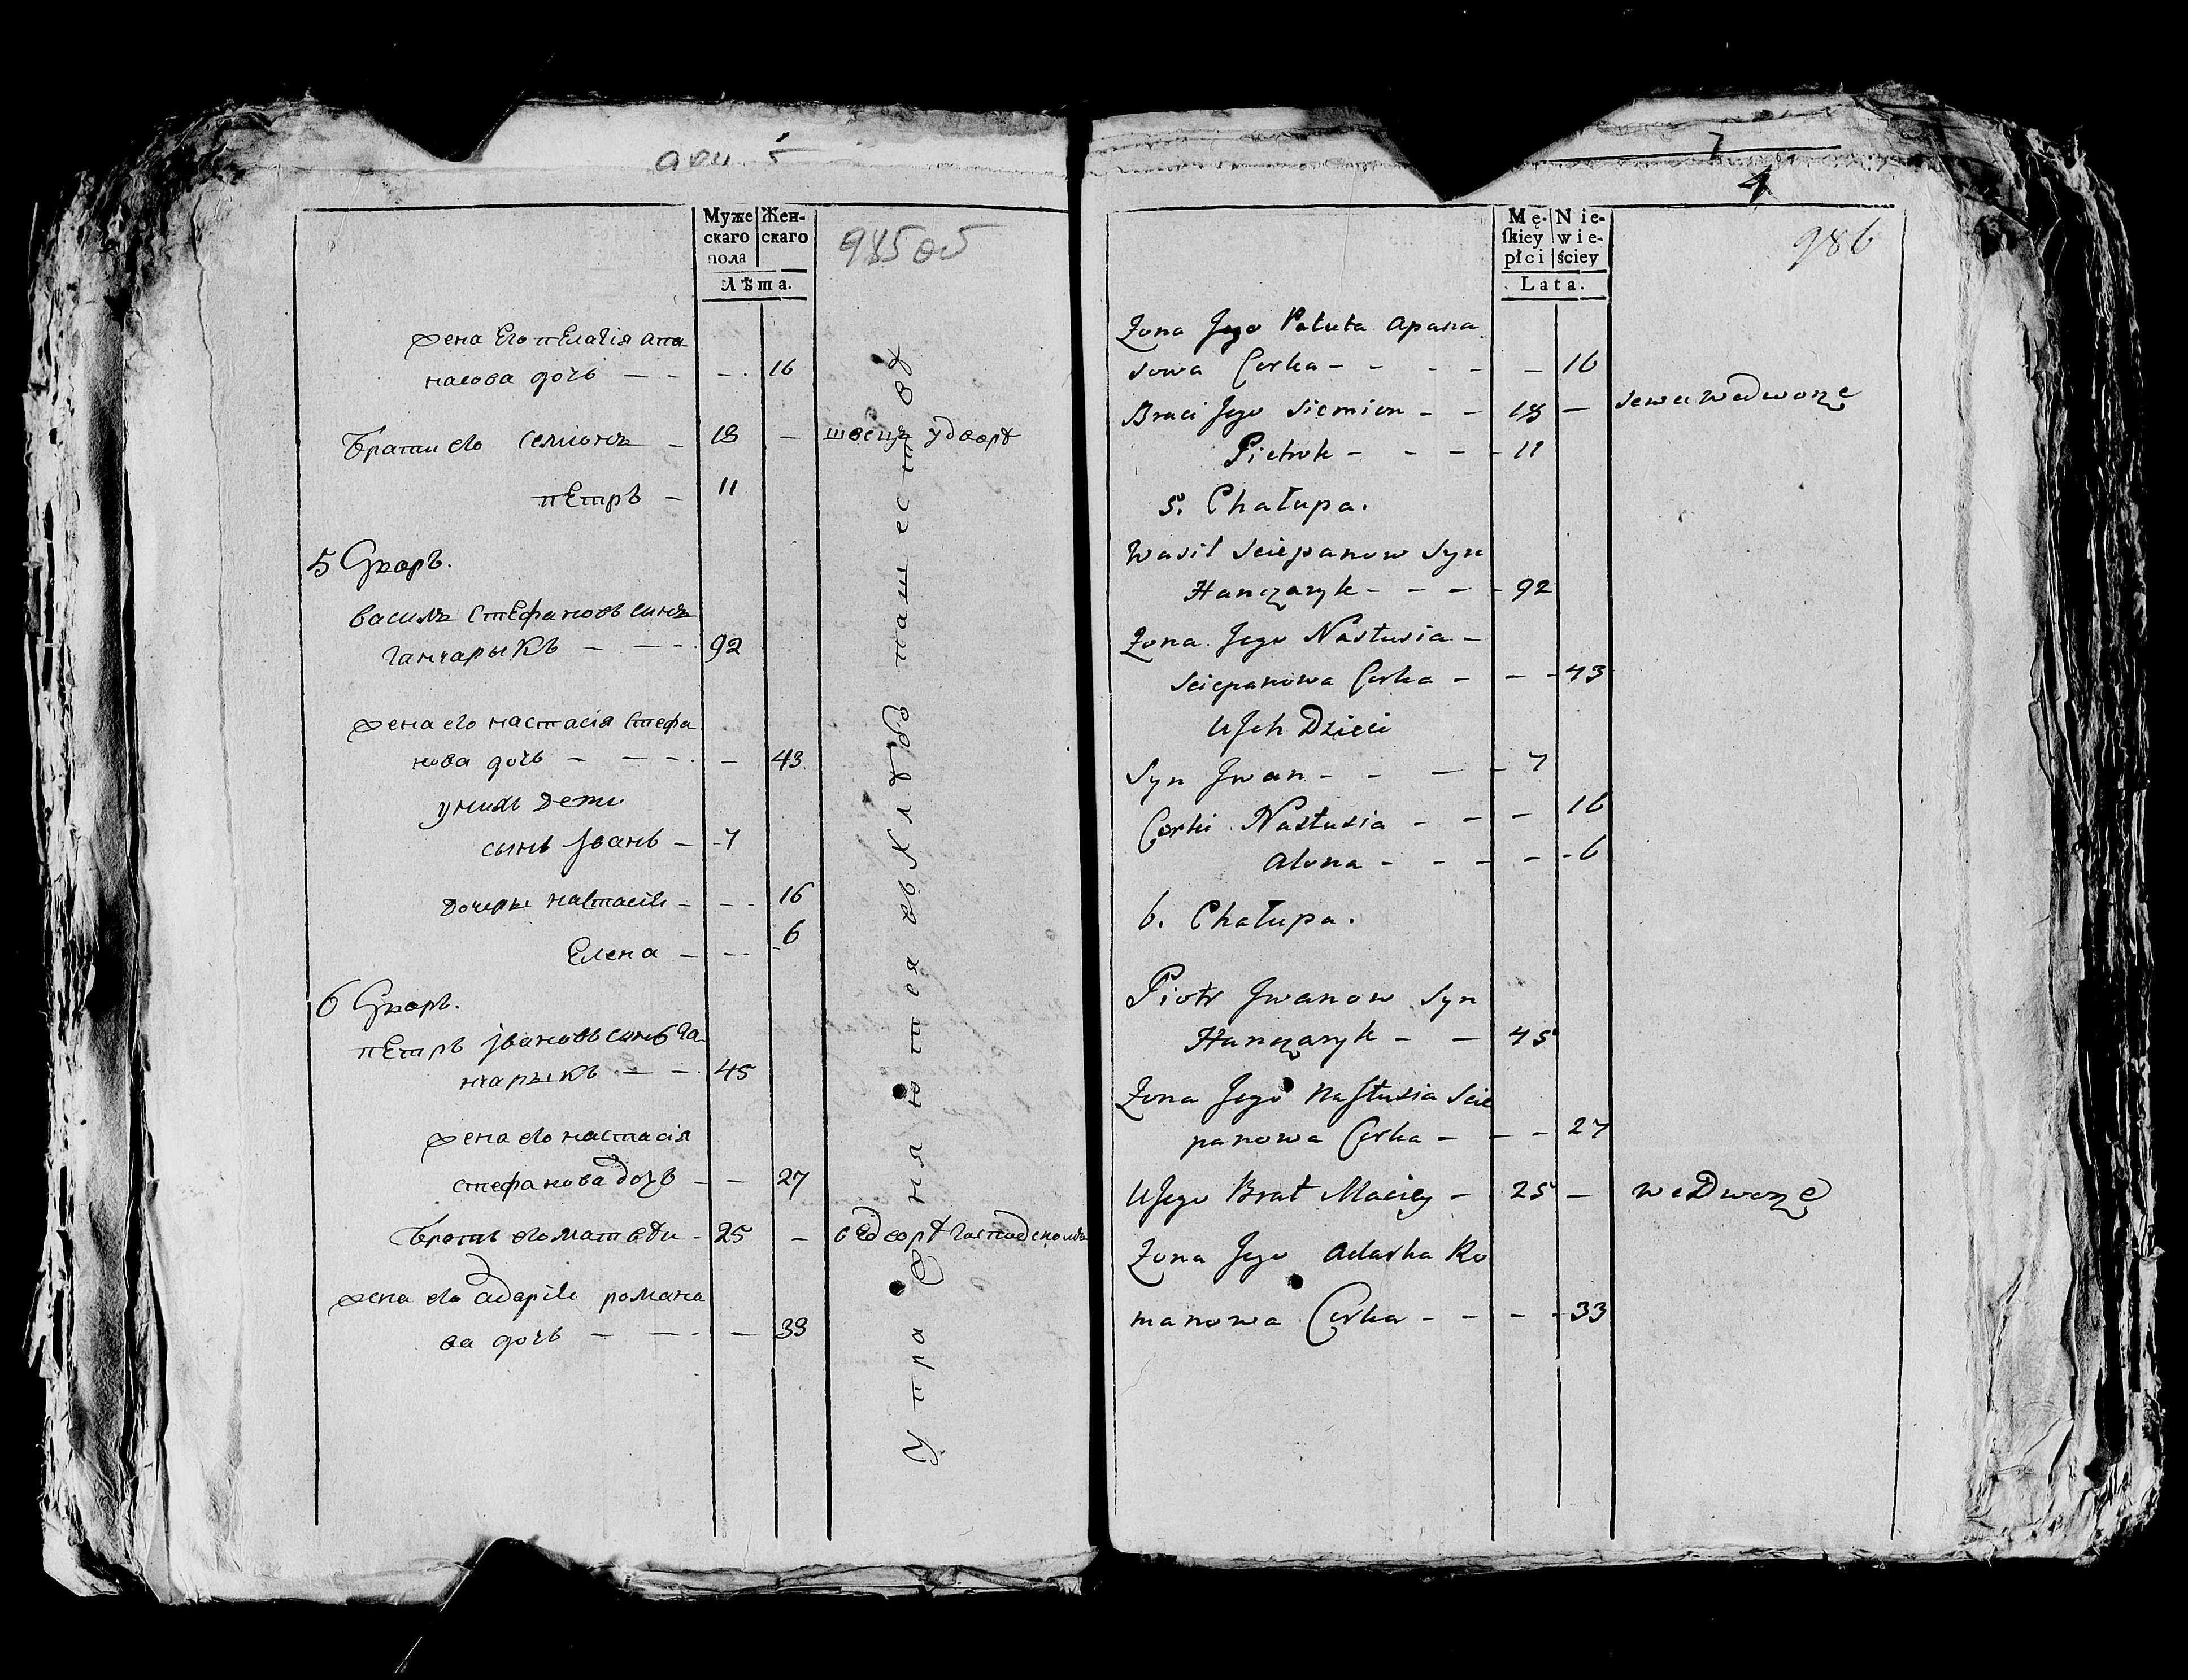 985об
Муже
скаго
пола
Жен-
скаго
Лѣта.
жена Его пЕлагія апа-
насова дочь — — — 16
Брати его семіонъ — 18 — швецъ у дворѣ
пЕтръ — 11
5 Дворъ.
василь стЕфановъ синъ
ганчарыкъ — — — 92
жена его настасія стефа
нова дочь — — — — 43
у нихъ дети
сынъ Іванъ — 7
дочеры настасія — — 16
Елена — — 6
6 Дворъ.
пЕтръ Івановъ синъ га
нчарыкъ — — 45
жена его настасія
стефанова дочъ — — 27
Братъ его матвѣи — 25 —
жена его адарія романо
ва дочь — — — 33
7
4
986
Mę-
ſkiey
płci
Nie-
wie-
ściey
Lata.
Żona Jego Paluta Apana
sowa Corka — — — — 16
Braci Jego Siemion — — 18 —
Pietruk — — — 11
5. Chałupa.
Wasil Sciepanow Syn
Hanczaryk — — — 92
Żona Jego Nastusia —
Sciepanowa Corka — — — 43
U Jch Dzieci
Syn Jwan — — — 7
Corki Nastusia — — — 16
Alona — — — — 6
6. Chałupa.
Piotr Jwanow Syn
Hanczaryk — — 45
Żona Jego Naſtusia Scie
panowa Corka — — — 27
U Jego Brat Maciey — 25 — we Dworze
Żona Jego Adarka Ro
manowa Corka — — — 33